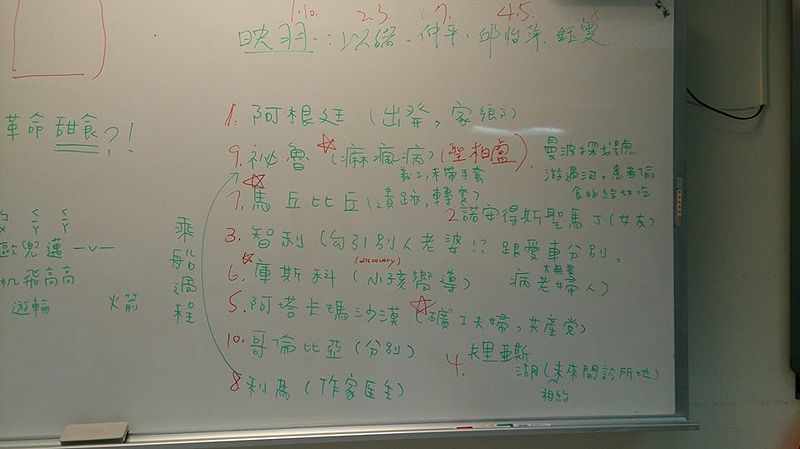 1.10. 2.3. 7. 4.5.
映羽：以諾、仲平、邱怡萍、鈺雯
革命 甜食?!
1. 阿根廷（出発，家鄉）
9. 祕魯（痲瘋病）（聖柏盧）
義工，未帶手套
曼波探戈號
游過河，患者偷
食物給切吃
7. 馬丘比丘（遺跡，轉党）
2. 諾安得斯聖馬丁（女友）
3. 智利（勾引別人老婆!? 跟愛車分別，
病老婦人）
6. 庫斯科（小孩嚮導）
(discovery)
5. 阿塔卡瑪沙漠（礦工夫婦，共產党）
10. 哥倫比亞（分別）
4. 卡里亞斯
湖（未來開診所地）
相約
8. 利馬（作家医生）
乘船過程
歐兜邁 —v—
机飛高高
遊輪 火箭